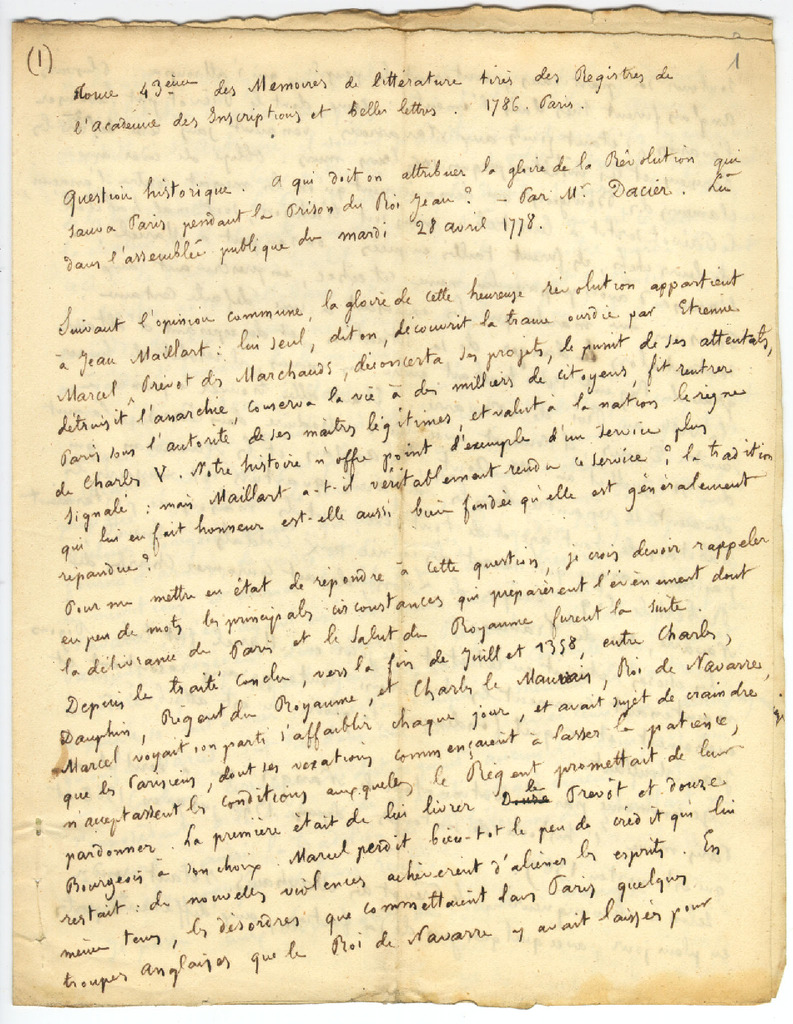 (1)
1
Tome 43ème des Memoires de littérature tirés des Registres de
l'Académie des Inscriptions et belles lettres. 1786. Paris.
Question historique. A qui doit on attribuer la gloire de la Révolution qui
sauva Paris pendant la Prison du Roi Jean? - Par Mr. Dacier. Lu
dans l'assemblée publique du mardi 28 avril 1778.
Suivant l'opinion commune, la gloire de cette heureuse révolution appartient
à Jean Maillart: lui seul, dit on, découvrit la trame ourdie par Etienne
Marcel, Prévot des Marchands, déconcerta ses projets, le punit de ses attentats,
détruisit l'anarchie, conserva la vie à des milliers de citoyens, fit rentrer
Paris sous l'autorité de ses maîtres légitimes, et valut à la nation le règne
de Charles V. Notre histoire n'offre point d'exemple d'un service plus
signalé: mais Maillart a-t-il véritablement rendu ce service? la tradition
qui lui en fait honneur est-elle aussi bien fondée qu'elle est généralement
répandue?
Pour me mettre en état de répondre à cette question, je crois devoir rappeler
en peu de mots les principales circonstances qui préparèrent l'évènement dont
la délivrance de Paris et le salut du Royaume furent la suite.
Depuis le traité conclu, vers la fin de Juillet 1358, entre Charles,
Dauphin, Régent du Royaume, et Charles le Mauvais, Roi de Navarre,
Marcel voyait son parti s'affaiblir chaque jour, et avait sujet de craindre
que les Parisiens, dont ses vexations commençaient à lasser la patience,
n'acceptassent les conditions auxquelles le Régent promettait de leur
pardonner. La première était de lui livrer le Prévôt et douze
Bourgeois à son choix. Marcel perdit bien-tot le peu de crédit qui lui
restait: de nouvelles violences achevèrent d'aliéner les esprits. En
même tems, les désordres que commettaient dans Paris quelques
troupes anglaises que le Roi de Navarre y avait laissées pour